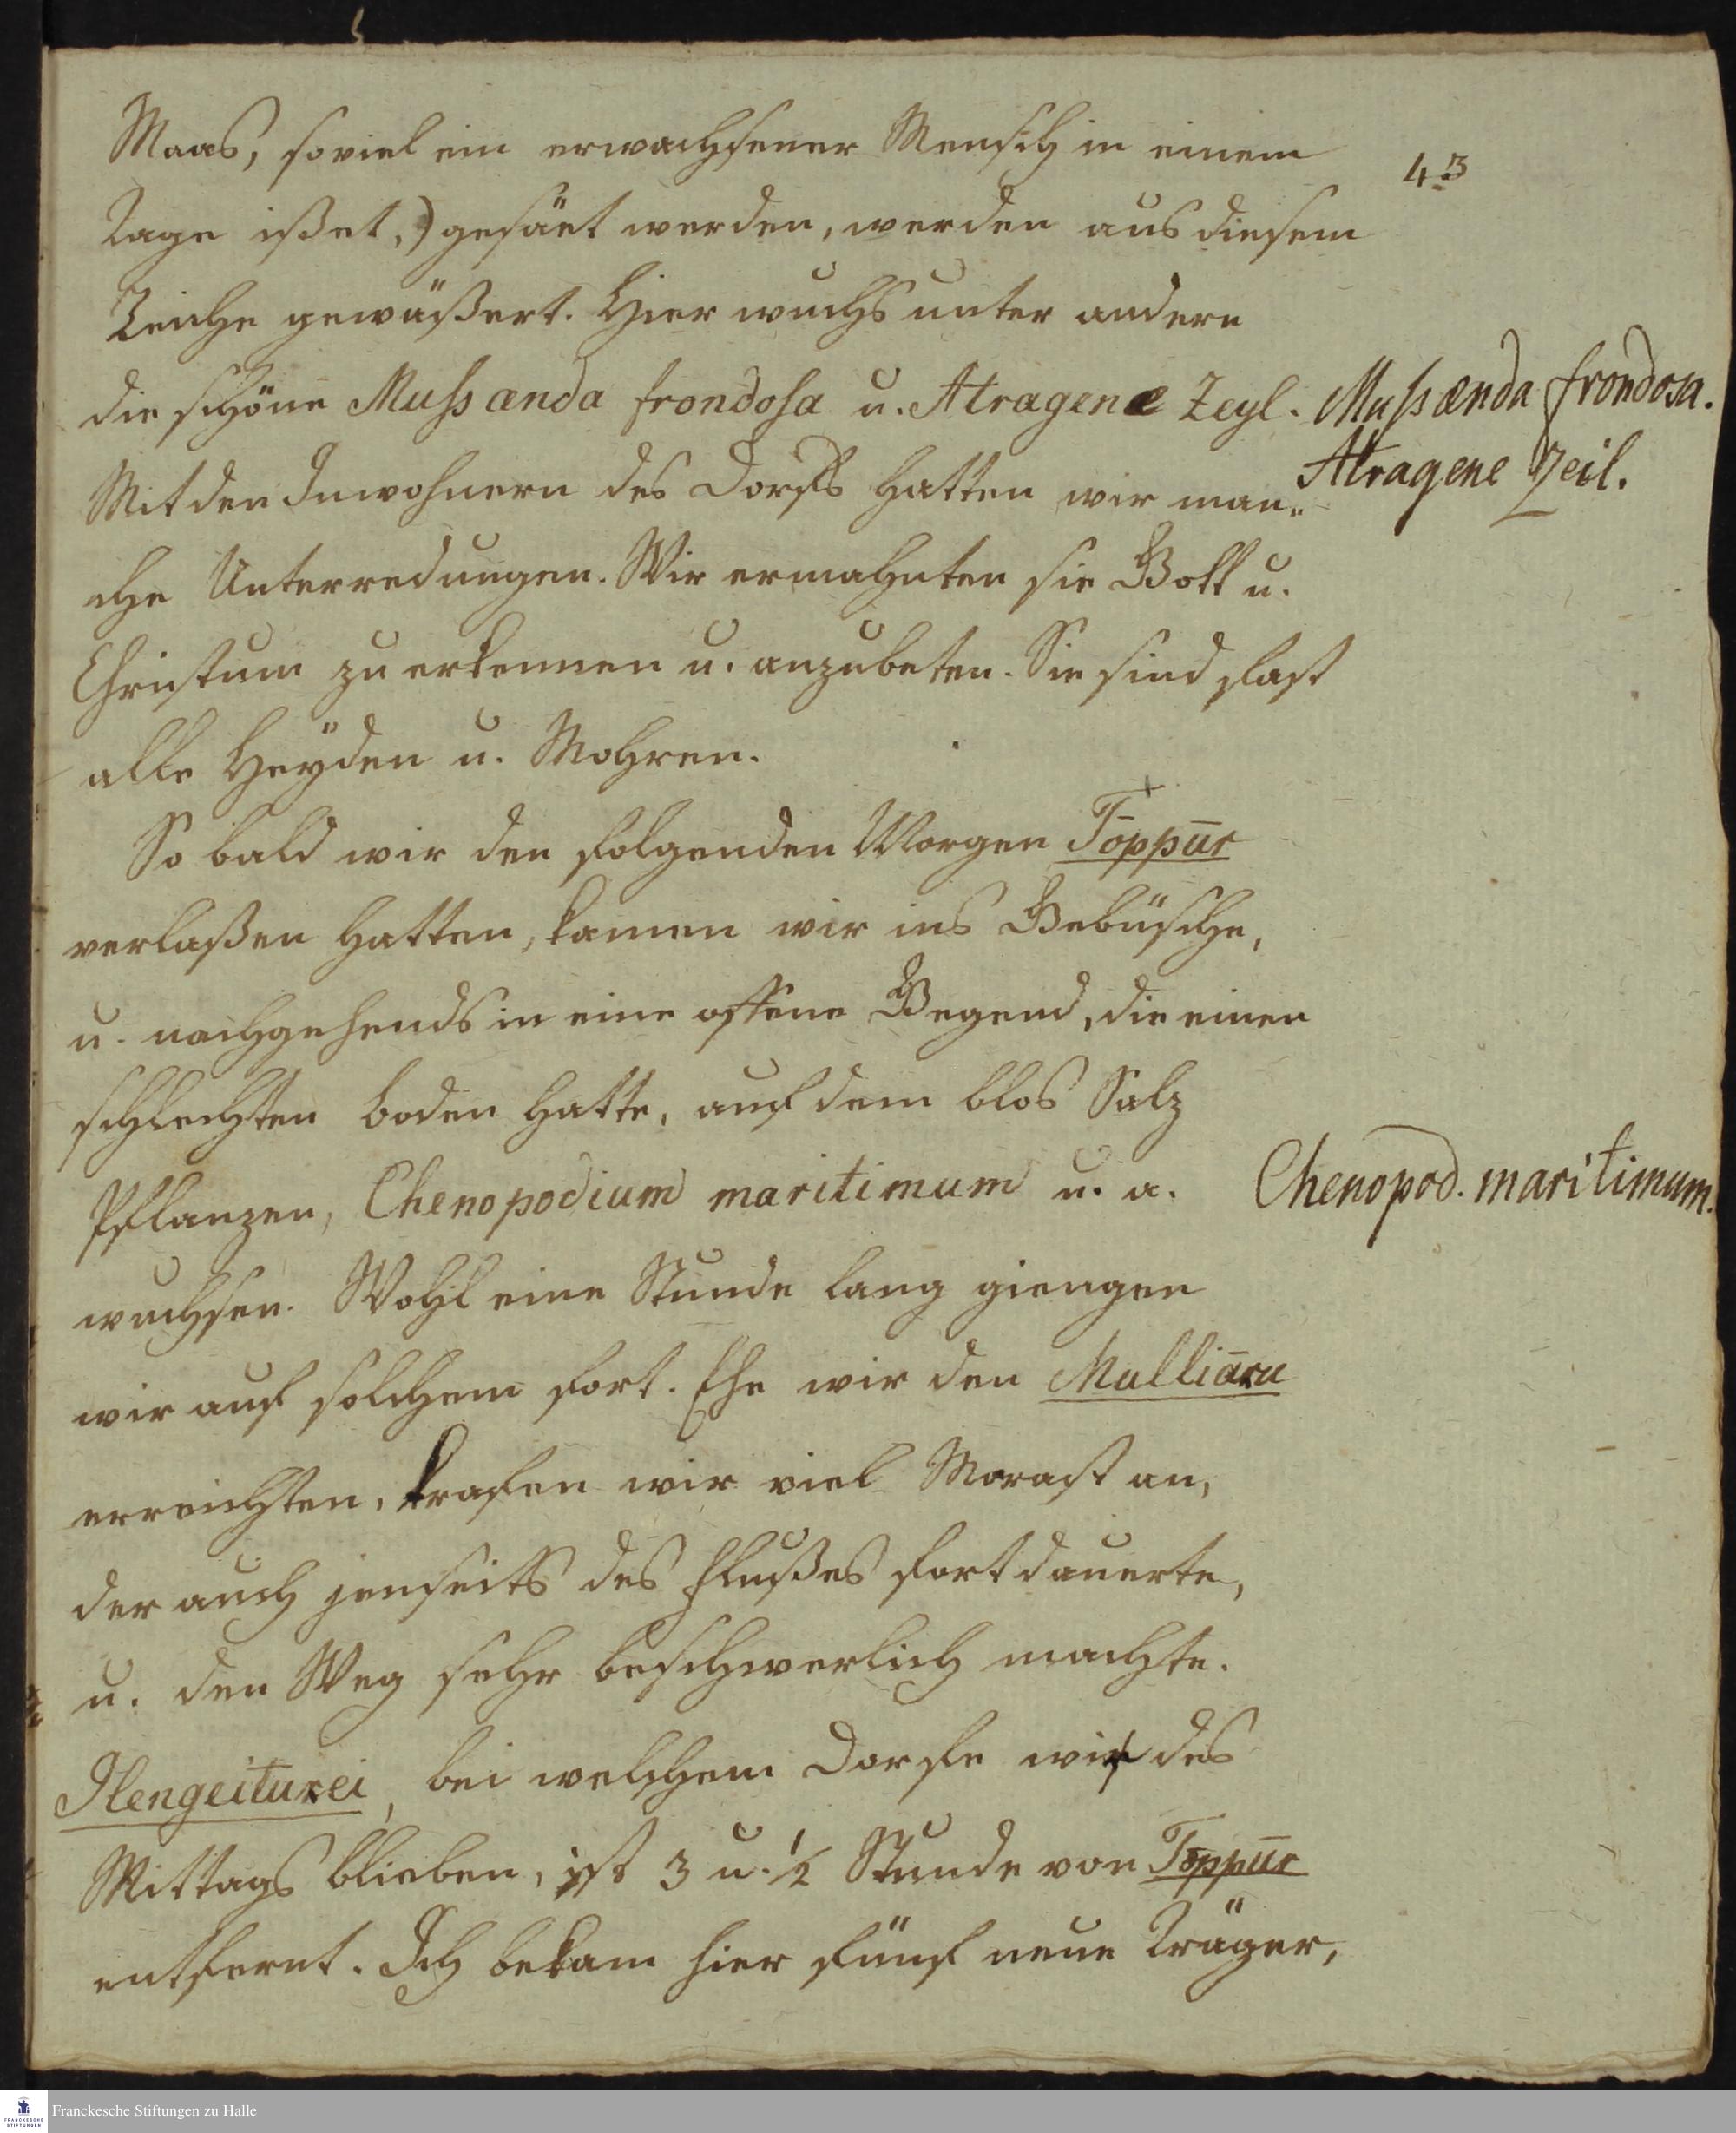 43
Maas, soviel ein erwachsener Mensch in einem
Tage ißet,) gesäet werden, werden aus diesem
Teiche gewäßert. Hier wuchs unter andern
die schöne Mussænda frondosa u. Atragene Zeyl.
Mussænda frondosa.
Atragene Zeil.
Mit den Inwohnern des Dorfs hatten wir man„
che Unterredungen. Wir ermahnten sie Gott u.
Christum zu erkennen u. anzubeten. Sie sind fast
alle Heyden u. Mohren.
So bald wir den folgenden Morgen Tōppūr
verlaßen hatten, kamen wir ins Gebüsche,
u. nachgehends in eine offene Gegend, die einen
schlechten Boden hatte, auf dem blos Salz
Pflanzen, Chenopodium maritimum u. a.
Chenopod. maritimum.
wuchsen. Wohl eine Stunde lang giengen
wir auf solchem fort. Ehe wir den Mulliāru
erreichten, trafen wir viel Morast an,
der auch jenseits des Flußes fortdauerte,
u. den Weg sehr beschwerlich machte.
Ilengeiturei, bei welchem Dorfe wir des
Mittags blieben, ist 3 u. 1/2 Stunde von Tōppūr
entfernt. Ich bekam hier fünf neue Träger,
Franckesche Stiftungen zu Halle
FRANCKESCHE
STIFTUNGEN